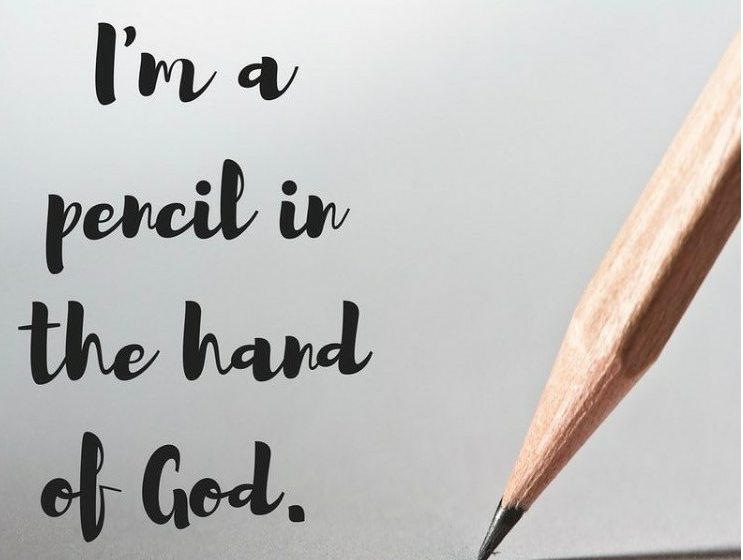 I'm a
pencil in
the hand
of God.